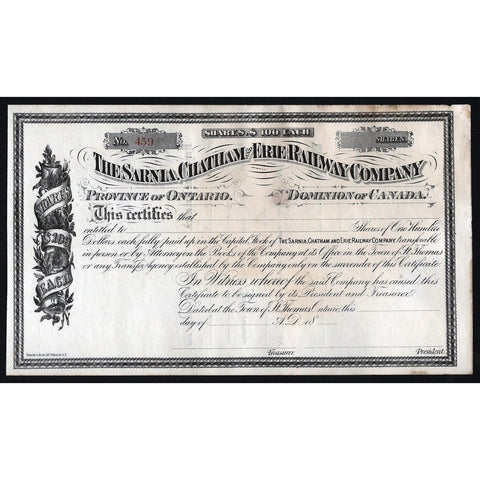 SHARES, $100 EACH
No. 459
SHARES.
THE SARNIA, CHATHAM AND ERIE RAILWAY COMPANY
PROVINCE OF ONTARIO. DOMINION OF CANADA.
This certifies that
entitled to Shares of One Hundred
Dollars each, fully paid up in the Capital Stock of THE SARNIA, CHATHAM AND ERIE RAILWAY COMPANY, transferable
in person or by Attorney on the Books of the Company at its Office in the Town of St. Thomas
or any Transfer Agency established by the Company only on the surrender of this Certificate
In Witness whereof the said Company has caused this
Certificate to be signed by its President and Treasurer
Dated at the Town of St. Thomas Ontario, this
day of A.D. 18
Treasurer. President.
SHARES
$100
EACH